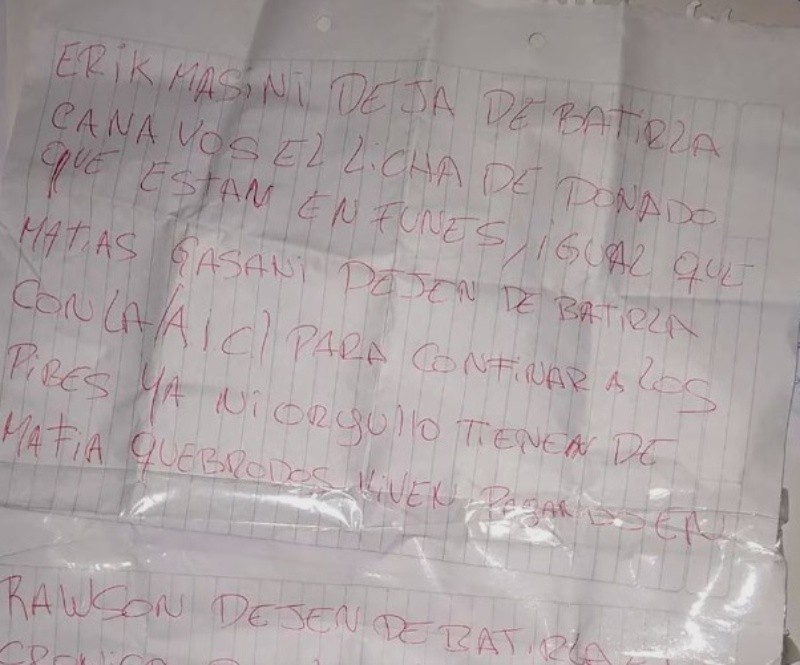 ERIK MASINI DEJA DE BATIRLA
CANA VOS EL LICHA DE DONADO
QUE ESTAN EN FUNES, IGUAL QUE
MATIAS GASANI DEJEN DE BATIRLA
CON LA /A/C/ PARA CONFINAR A LOS
PIBES YA NI ORGULLO TIENEN DE
MAFIA QUEBRODOS VIVEN PAGANDO EN
RAWSON DEJEN DE BATIRLA